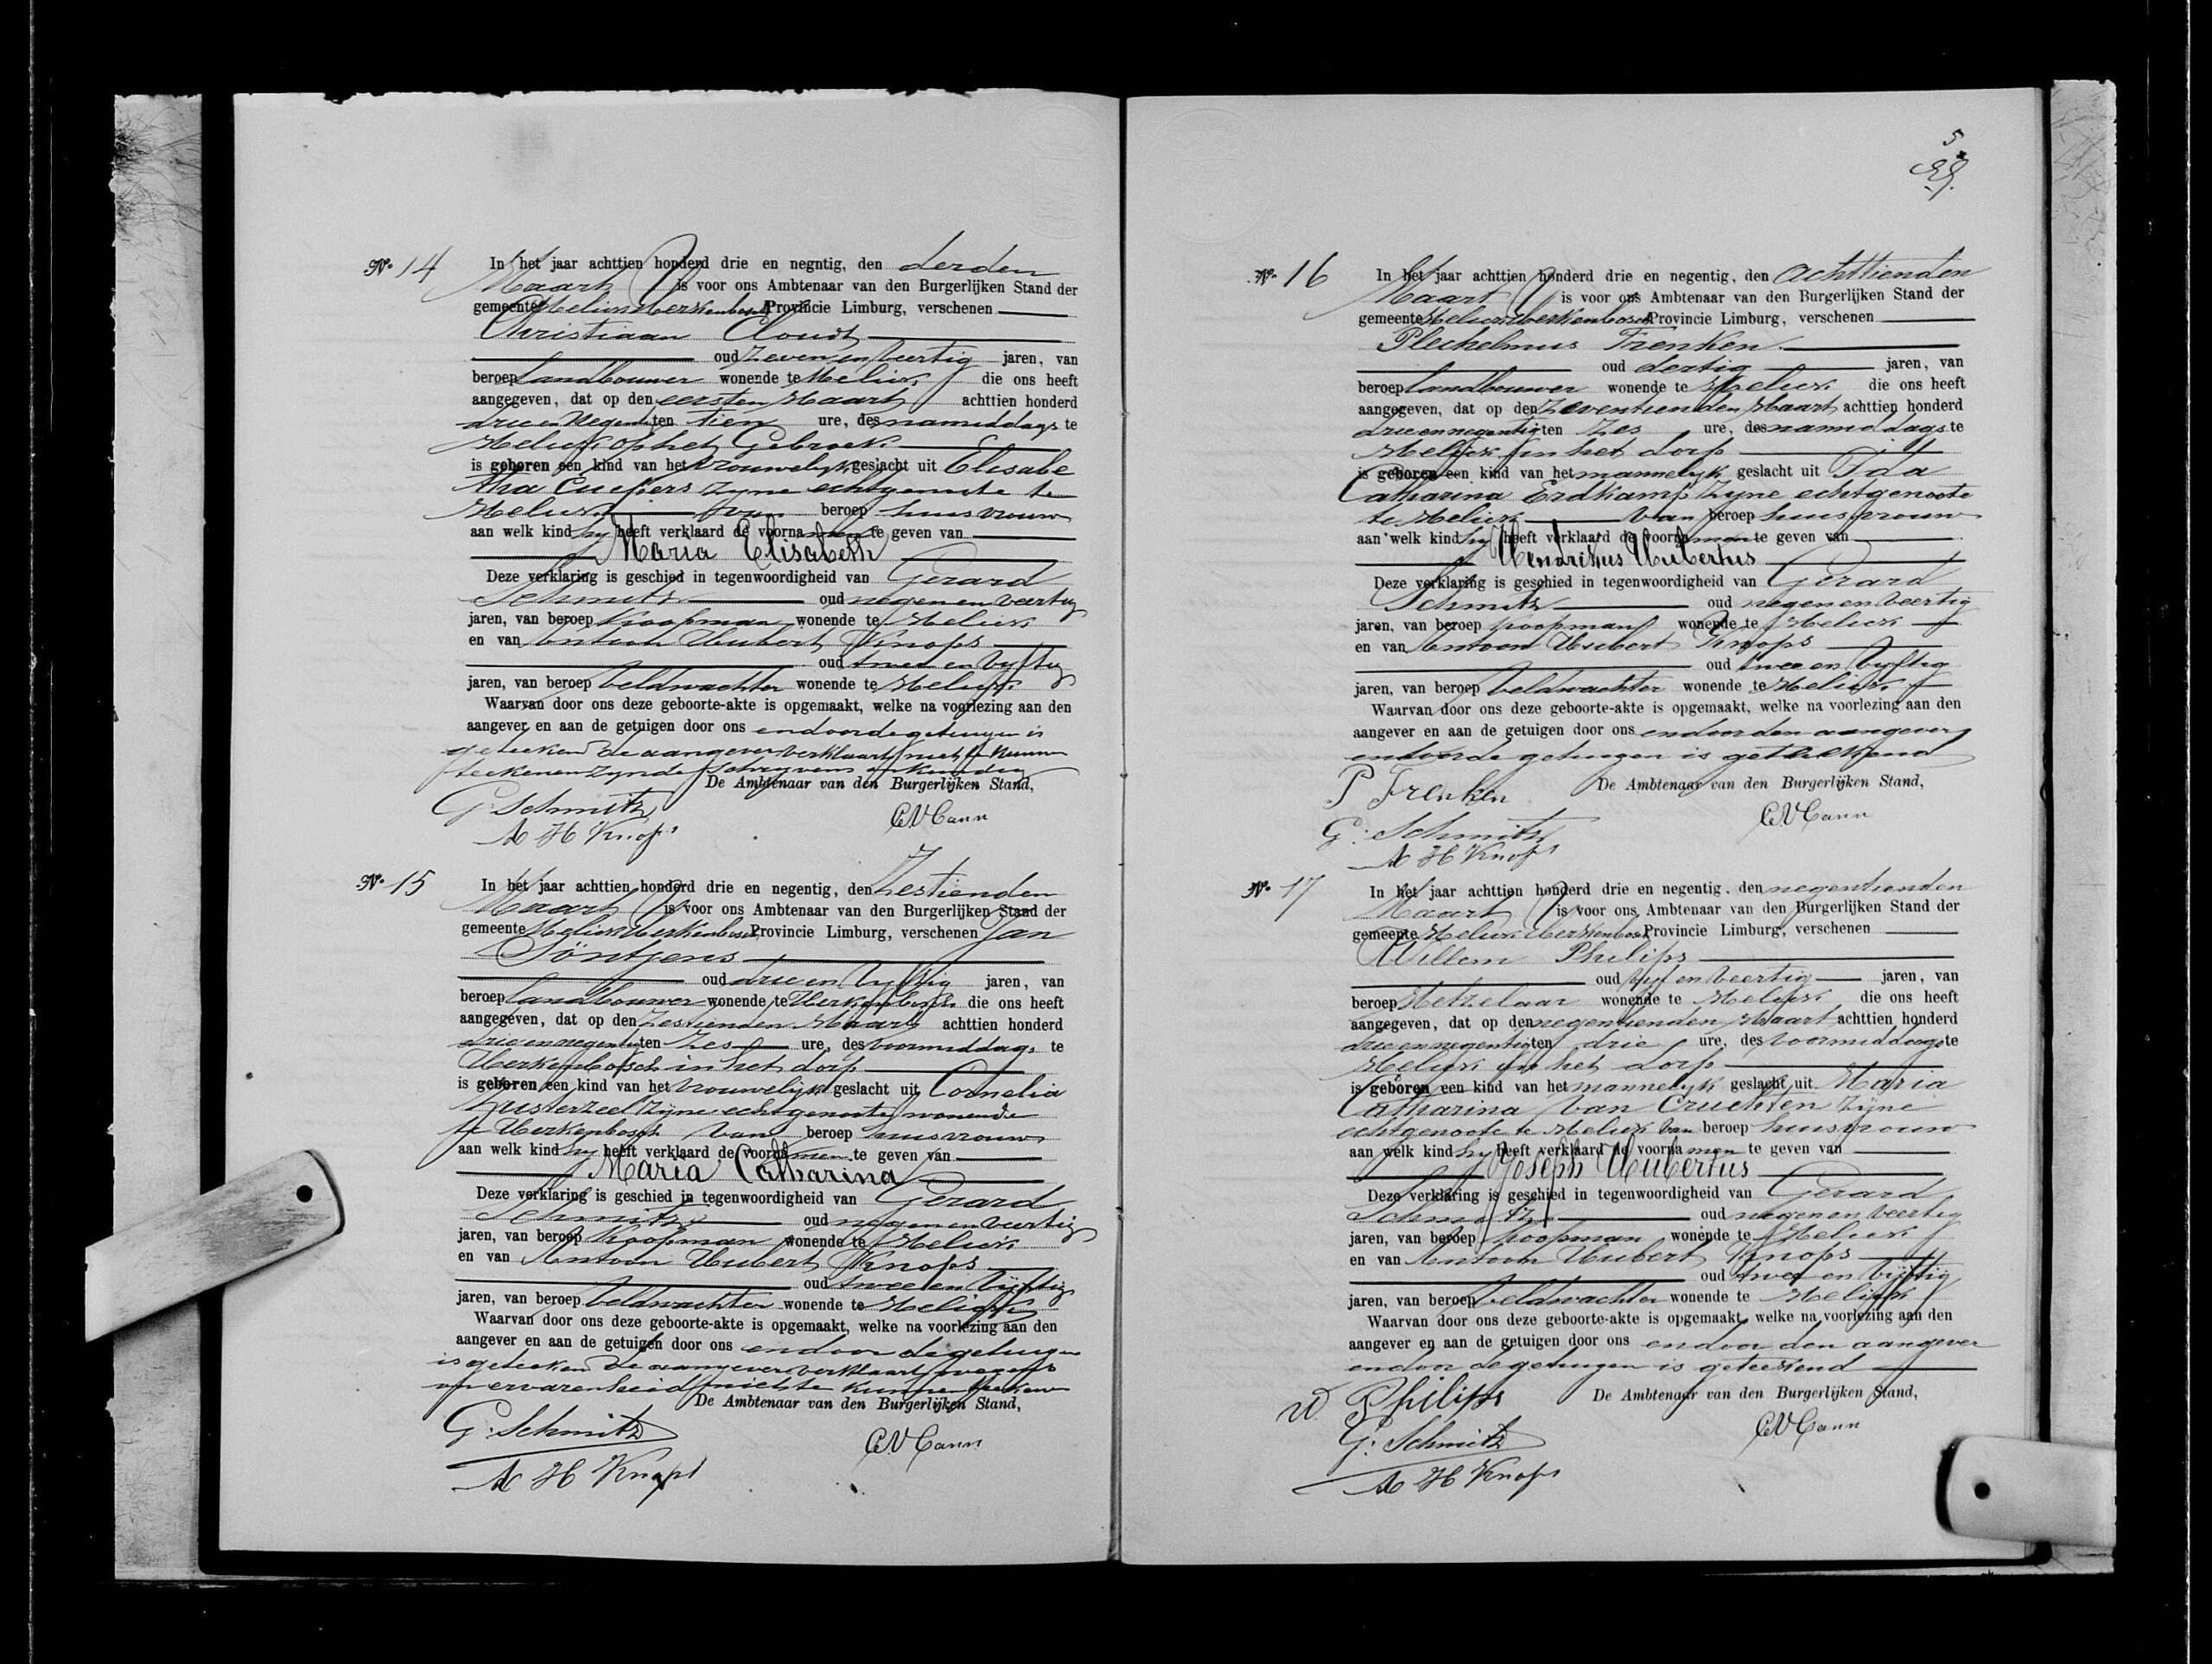 Nº 14 In het jaar achttien honderd drie en negntig, den derden
Maart is voor ons Ambtenaar van den Burgerlijken Stand der
gemeente Melick Herkenbosch Provincie Limburg, verschenen
Christiaan
oud Zeven en veertig jaren, van
beroep landbouwer wonende te Melick die ons heeft
aangegeven, dat op den eersten Maart achttien honderd
drie en Negentig ten tien ure, des namiddags te
Melick op het Gebroek
is geboren een kind van het vrouwelijk geslacht uit Elisabe
tha Cuepers zyne echtgenoote te
Melick van beroep huisvrouw
aan welk kind hy heeft verklaard de voornamen te geven van
Maria Elisabeth
Deze verklaring is geschied in tegenwoordigheid van Gerard
Schmitz oud negen en veertig
jaren, van beroep Koopman wonende te Melick
en van Antoon Hubert Knops
oud twee en vyftig
jaren, van beroep Veldwachter wonende te Melick
Waarvan door ons deze geboorte-akte is opgemaakt, welke na voorlezing aan den
aangever en aan de getuigen door ons en door de getuigen is
geteekend de aangever verklaart niet te kunnen
teekenen zynde schryvens onkundig
De Ambtenaar van den Burgerlijken Stand,
G. Schmitz
A H Knops
Nº 15 In het jaar achttien honderd drie en negentig, den Zestienden
Maart is voor ons Ambtenaar van den Burgerlijken Stand der
gemeente Melick Herkenbosch Provincie Limburg, verschenen Jan
Söntjens
oud drie en vyftig jaren, van
beroep landbouwer wonende te Herkenbosch die ons heeft
aangegeven, dat op den Zestienden Maart achttien honderd
drie en negentig ten Zes ure, des voormiddags te
Herkenbosch in het dorp
is geboren een kind van het vrouwelijk geslacht uit Cornelia
Zusterzeel zyne echtgenoote wonende
te Herkenbosch van beroep huisvrouw
aan welk kind hy heeft verklaard de voornamen te geven van
Maria Catharina
Deze verklaring is geschied in tegenwoordigheid van Gerard
Schmitz oud negen en veertig
jaren, van beroep Koopman wonende te Melick
en van Antoon Hubert Knops
oud twee en vyftig
jaren, van beroep Veldwachter wonende te Melick
Waarvan door ons deze geboorte-akte is opgemaakt, welke na voorlezing aan den
aangever en aan de getuigen door ons en door de getuigen
is geteekend de aangever verklaart wegens
onervarenheid niet te kunnen teekenen
De Ambtenaar van den Burgerlijken Stand,
G. Schmitz
A H Knops
5
Nº 16 In het jaar achttien honderd drie en negentig, den achttienden
Maart is voor ons Ambtenaar van den Burgerlijken Stand der
gemeente Melick Herkenbosch Provincie Limburg, verschenen
Plechelmus Frenken
oud dertig jaren, van
beroep landbouwer wonende te Melick die ons heeft
aangegeven, dat op den Zeventienden Maart achttien honderd
drie en negentig ten Zes ure, des namiddags te
Melick in het dorp
is geboren een kind van het mannelyk geslacht uit Ida
Catharina Erdkamp zyne echtgenoote
te Melick van beroep huisvrouw
aan welk kind hy heeft verklaard de voornamen te geven van
Hendrikus Hubertus
Deze verklaring is geschied in tegenwoordigheid van Gerard
Schmitz oud negen en veertig
jaren, van beroep koopman wonende te Melick
en van Antoon Hubert Knops
oud twee en vyftig
jaren, van beroep Veldwachter wonende te Melick
Waarvan door ons deze geboorte-akte is opgemaakt, welke na voorlezing aan den
aangever en aan de getuigen door ons en door den aangever
en door de getuigen is geteekend
De Ambtenaar van den Burgerlijken Stand,
P Frenken
G. Schmitz
A H Knops
Nº 17 In het jaar achttien honderd drie en negentig, den negentienden
Maart is voor ons Ambtenaar van den Burgerlijken Stand der
gemeente Melick Herkenbosch Provincie Limburg, verschenen
Willem Philips
oud vyf en veertig jaren, van
beroep Metzelaar wonende te Melick die ons heeft
aangegeven, dat op den negentienden Maart achttien honderd
drie en negentig ten drie ure, des voormiddags te
Melick in het dorp
is geboren een kind van het mannelyk geslacht uit Maria
Catharina van Cruchten zijne
echtgenoote te Melick van beroep huisvrouw
aan welk kind hy heeft verklaard de voornamen te geven van
Joseph Hubertus
Deze verklaring is geschied in tegenwoordigheid van Gerard
Schmitz oud negen en veertig
jaren, van beroep koopman wonende te Melick
en van Antoon Hubert Knops
oud twee en vijftig
jaren, van beroep Veldwachter wonende te Melick
Waarvan door ons deze geboorte-akte is opgemaakt, welke na voorlezing aan den
aangever en aan de getuigen door ons en door den aangever
en door de getuigen is geteekend
De Ambtenaar van den Burgerlijken Stand,
W Philips
G. Schmitz
A H Knops